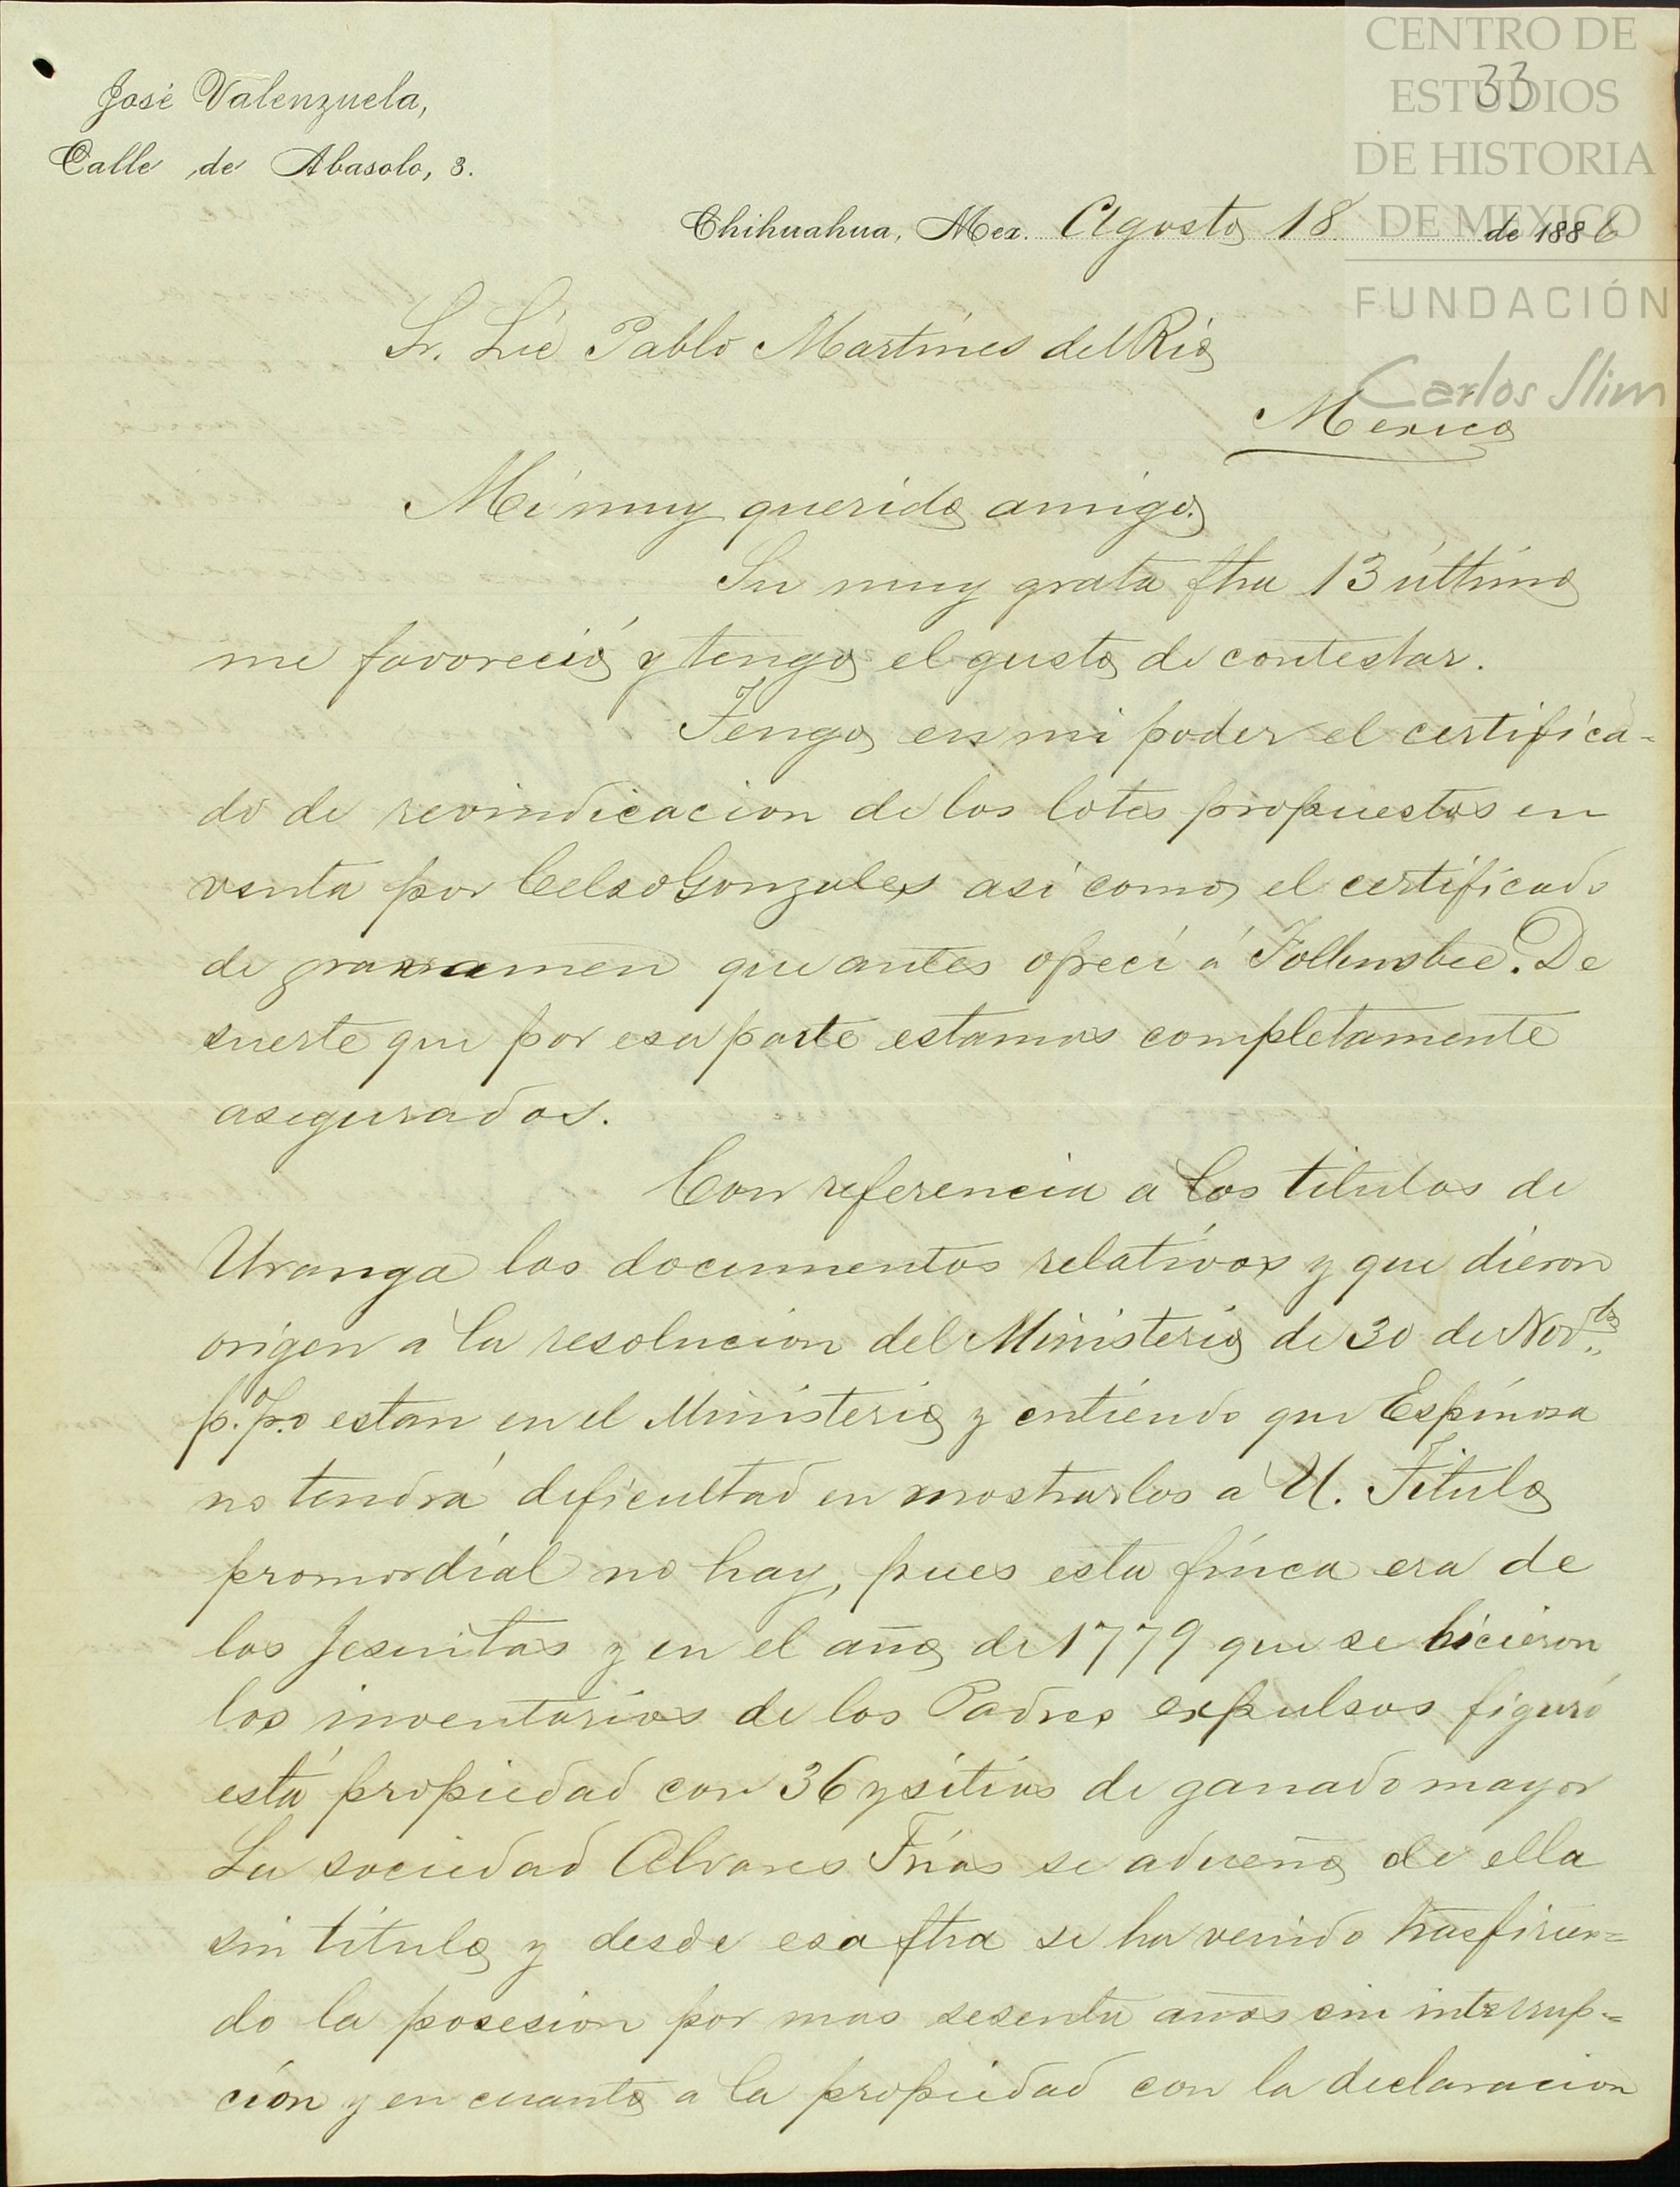 José Valenzuela,
Calle de Abasolo, 3.
CENTRO DE
ESTUDIOS
DE HISTORIA
DE MEXICO
FUNDACIÓN
Carlos Slim
33
Chihuahua, Mex. Agosto 18 de 1886
Sr. Lic Pablo Martines del Rio
Mexico
Mi muy querido amigo.
Su muy grata fha 13 último
me favoreció y tengo el gusto de contestar.
Tengo en mi poder el certifica-
do de revindicacion de los lotes propuestos en
venta por Celso Gonzales asi como el certificado
de gravamen que antes ofrecí á Follensbee. De
suerte que por esa parte estamos completamente
asegurados.
Con referencia a los titulos de
Uranga los documentos relativos y que dieron
origen a la resolucion del Ministerio de 30 de Novbre
p. po estan en el Ministerio y entiendo que Espinosa
no tendrá dificultad en mostrarlos a U. Titulo
promordial no hay, pues esta finca era de
los Jesuitas y en el año de 1779 que se hicieron
los inventarios de los Padres expulsos figuró
está propiedad con 36 y sitios de ganado mayor
La sociedad Alvares Frias se adueño de ella
sin titulo y desde esa fha se ha venido trasfirien=
do la posesion por mas sesenta años sin interrup-
ción y en cuanto a la propiedad con la declaracion